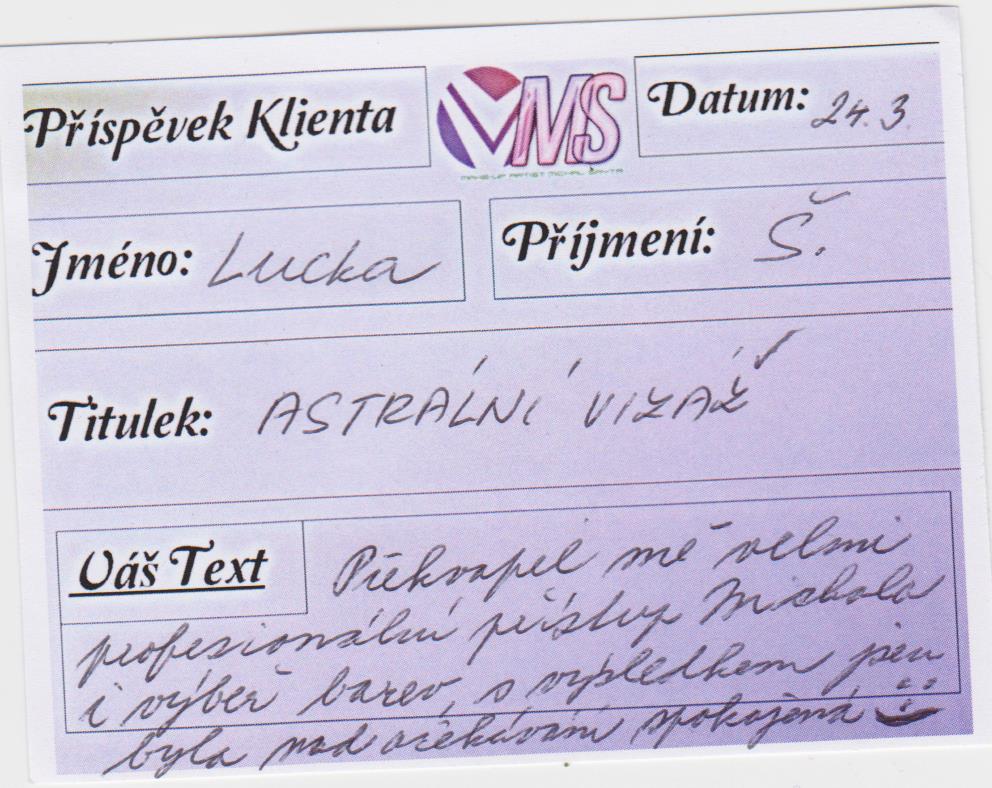 Příspěvek Klienta
VMS
MAKE-UP ARTIST MICHAL
Datum: 24.3.
Jméno: Lucka
Příjmení: Š.
Titulek: ASTRÁLNÍ VIZÁŽ
Váš Text
Překvapil mě velmi
profesionální přístup Michala
i výběr barev, s výsledkem jsem
byla nad očekávání spokojená